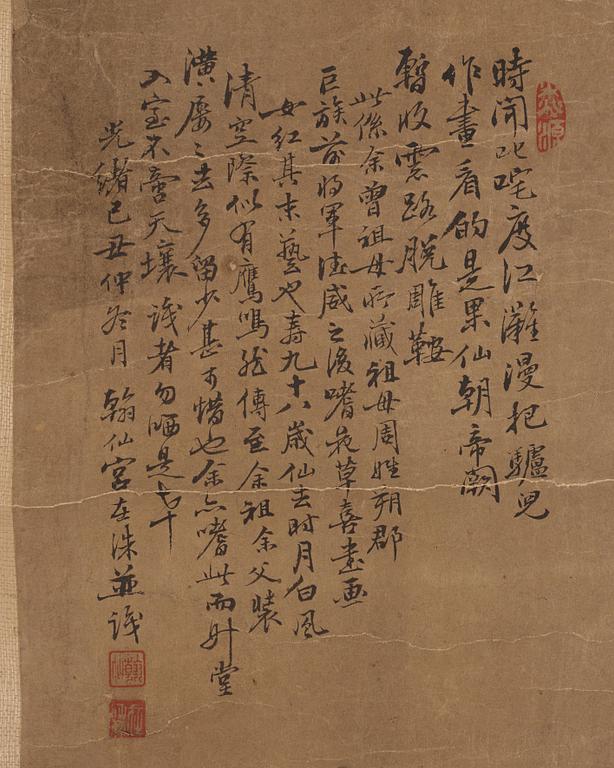 時聞叱咤度江灘漫把驢兒
作畫看的是果仙朝帝闕
暫收雲路脫雕鞍
此係余曾祖母所藏祖母周姓朔郡
巨族前將軍德威之後嗜艸草喜畫画
女紅其末藝也壽九十八歲仙去时月白風
清空際似有鷹鳴然傳至余祖余父裝
潢屡〻去多留少甚可惜也余亦嗜此而升堂
入室不啻天壤識者勿哂是幸
光緒己丑仲冬月 翰仙宮在洙並識